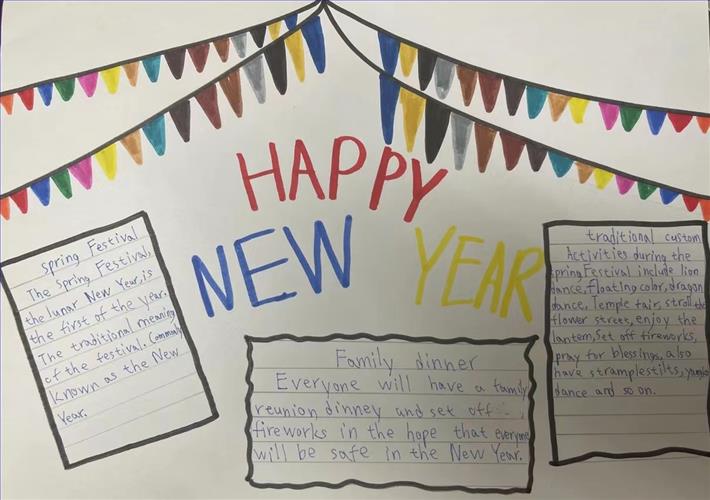 HAPPY
NEW YEAR
spring Festival
The Spring Festival,
the lunar New Year, is
the first of the year.
The traditional meaning
of the festival. Commonly
known as the New
Year.
Family dinner
Everyone will have a family
reunion dinney and set off
fireworks in the hope that everyone
will be safe in the New Year.
traditional custom
Activities during the
spring Festival include lion
dance, floating color, dragon
dance, Temple fair, stroll the
flower street, enjoy the
lantem, Set off fireworks,
pray for blessings, also
have stramplestilts, yangko
dance and so on.